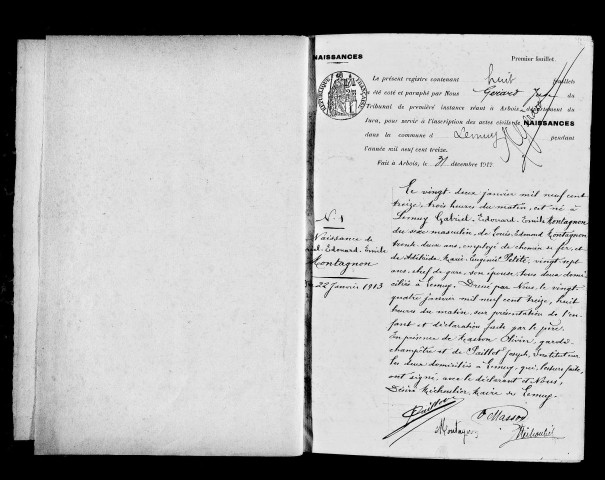 NAISSANCES
Premier feuillet.
Le présent registre contenant huit feuillets
été coté et paraphé par Nous Gerard Juge du
Tribunal de première instance séant à Arbois, département du
Jura, pour servir à l'inscription des actes civils de NAISSANCES
dans la commune d Lemuy pendant
l'année mil neuf cent treize.
Fait à Arbois, le 31 décembre 1912
N. 1
Naissance de
Edouard-Emile
Montagnon
22 Janvier 1913
Le vingt-deux janvier mil neuf cent
treize, trois heures du matin, est né à
Lemuy Gabriel-Edouard-Emile Montagnon
du sexe masculin, de Louis-Edmond Montagnon
trente deux ans, employé de chemin de fer, et
de Adélaïde Marie-Eugénie Petite, vingt sept
ans, chef de gare, son épouse, tous deux domi-
ciliés à Lemuy. Dressé par Nous, le vingt-
quatre janvier mil neuf cent treize, huit
heures du matin, sur présentation de l'en-
fant et déclaration faite par le père.
En présence de Masson Olivier, garde-
champêtre et de Paillot Joseph, Instituteur
les deux domiciliés à Lemuy, qui, lecture faite,
ont signé avec le déclarant et Nous,
Désiré Michoulier, Maire de Lemuy.
Paillot
O Masson
Montagnon